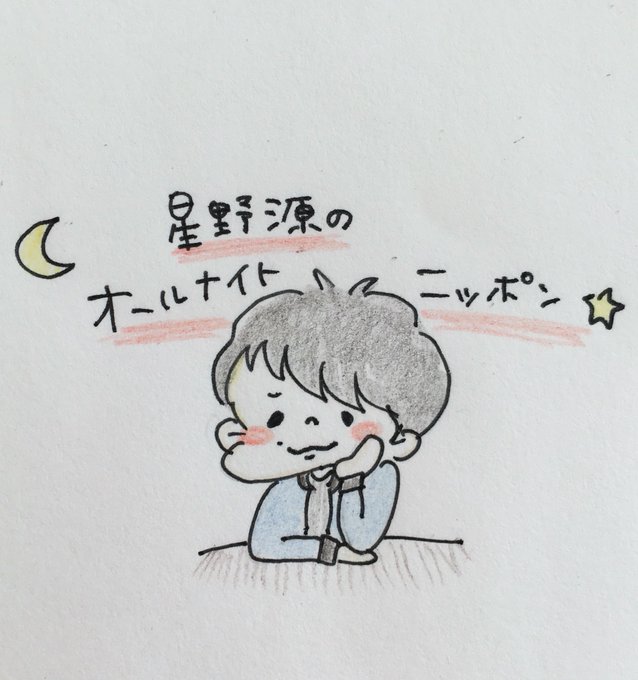 星野源の
オールナイト ニッポン